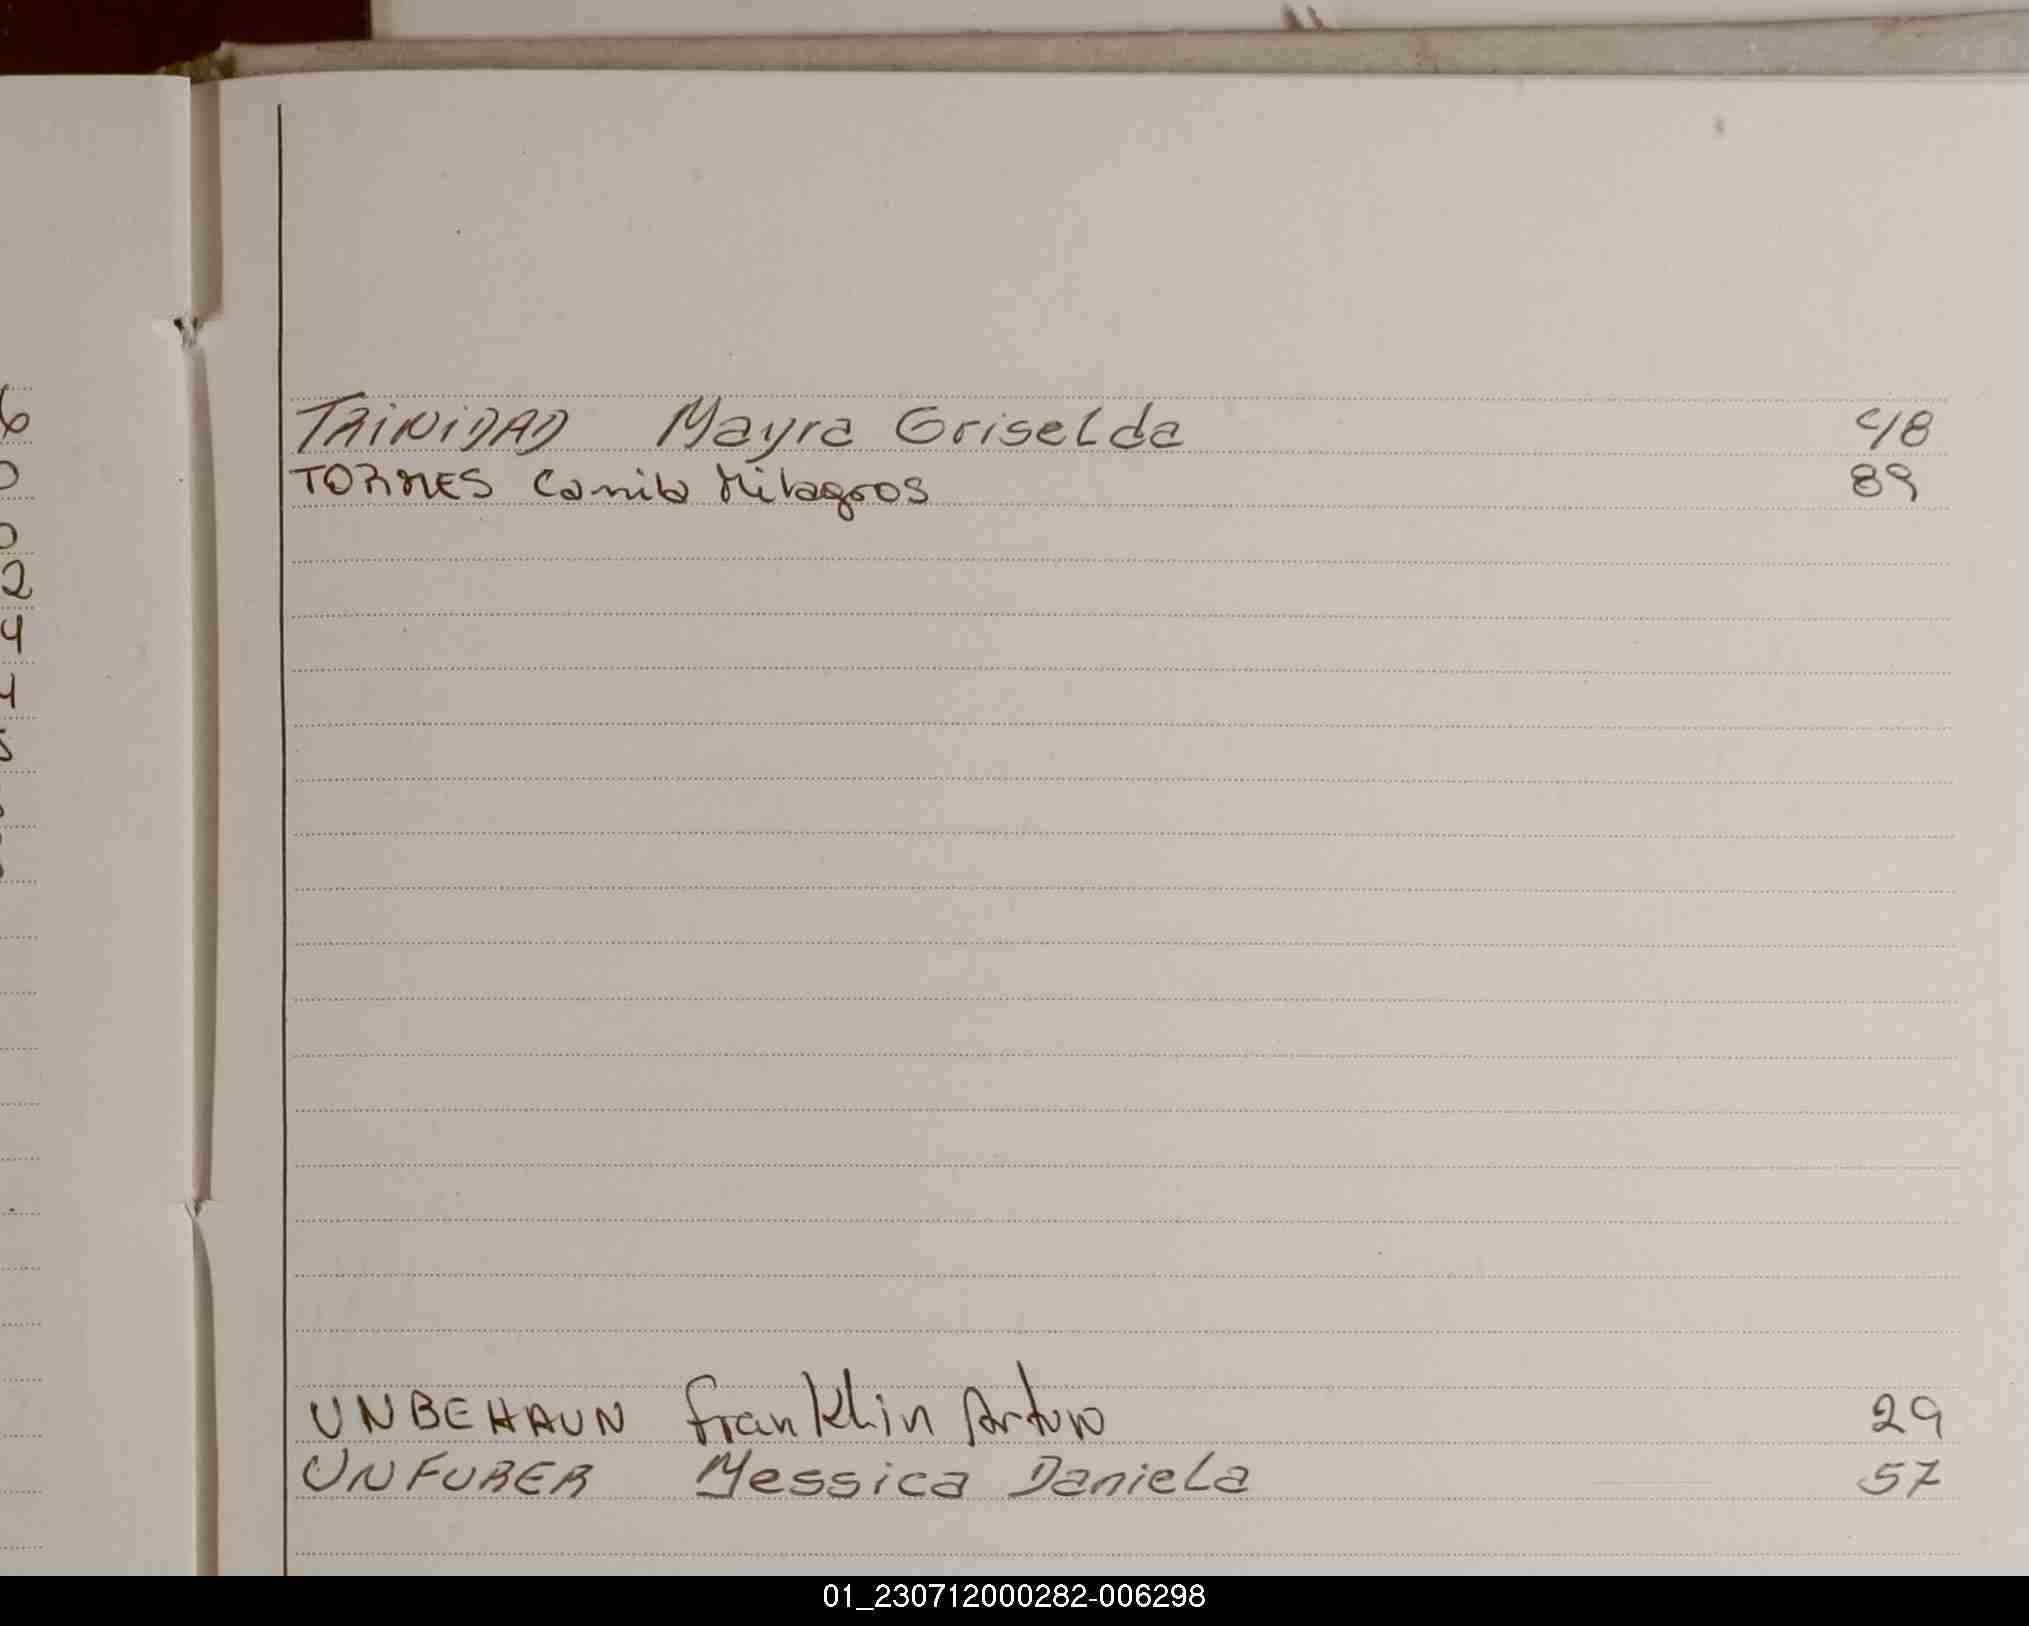 6
TRINIDAD Mayra Griselda 48
TORRES Camila Milagros 89
2
4
4
UNBEHAUN Franklin Arturo 29
UNFURER Yessica Daniela 57
01_230712000282-006298